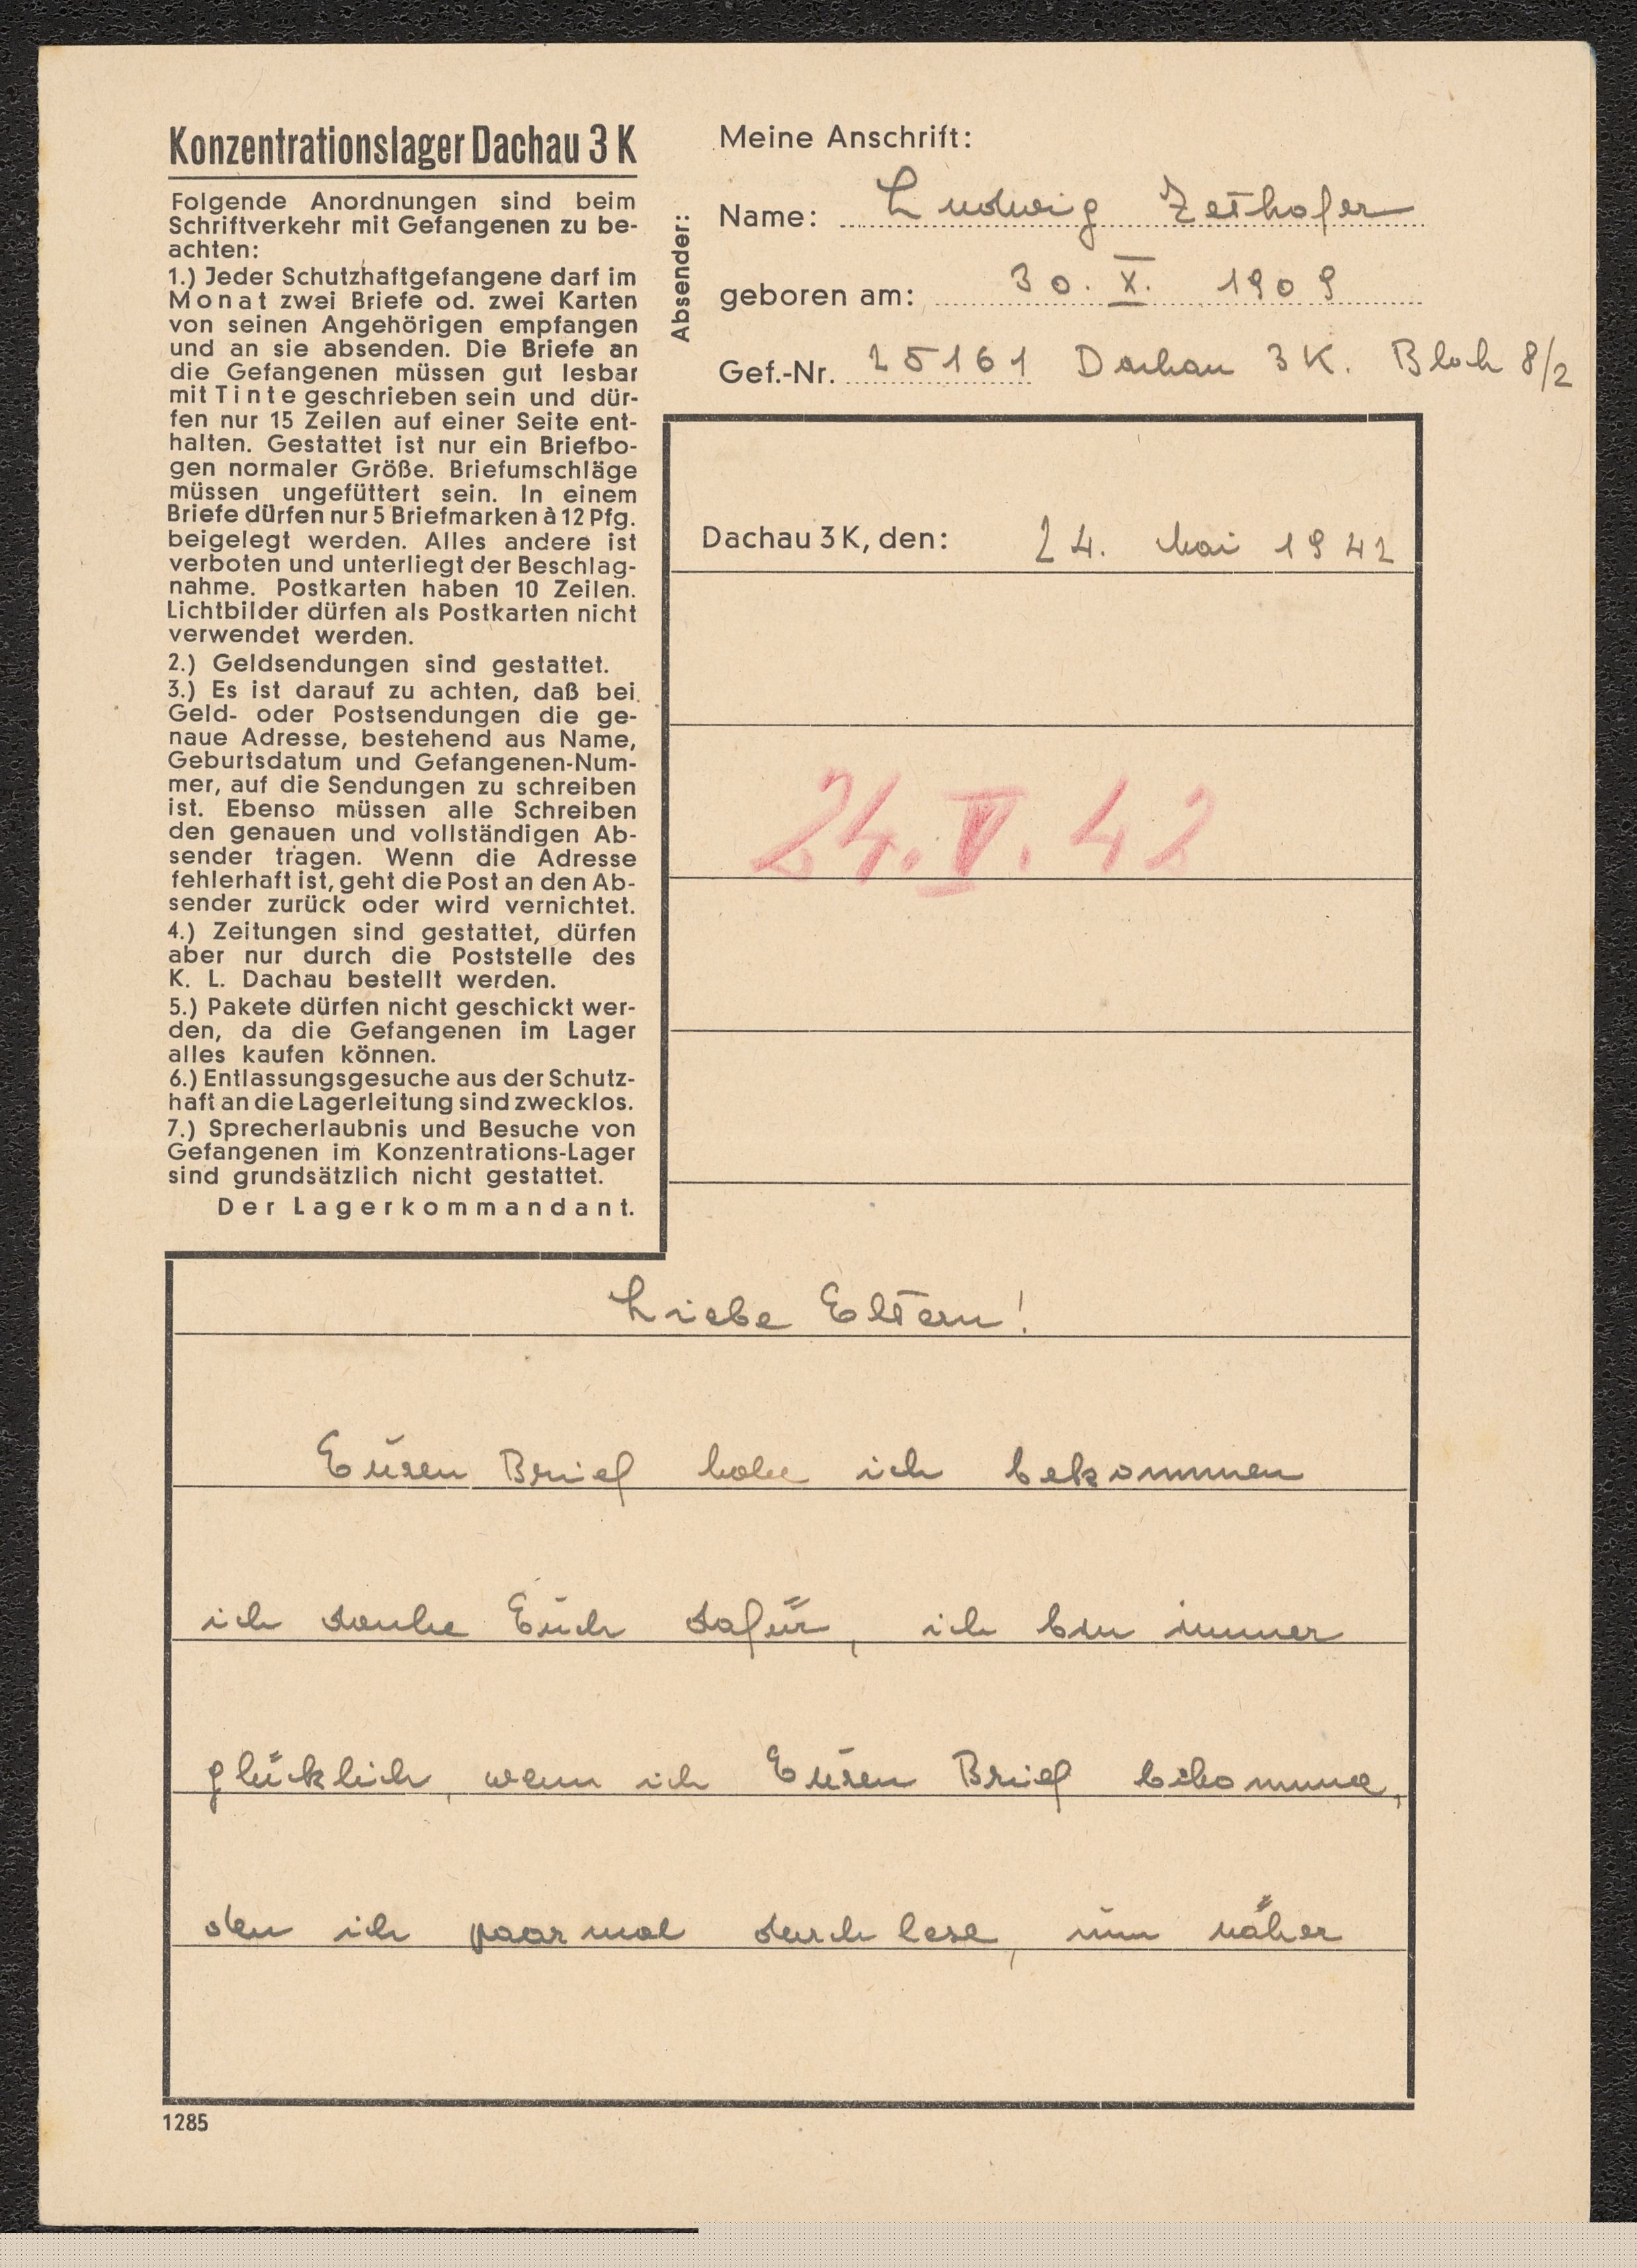 Konzentrationslager Dachau 3 K
Folgende Anordnungen sind beim
Schriftverkehr mit Gefangenen zu be-
achten:
1.) Jeder Schutzhaftgefangene darf im
Monat zwei Briefe od. zwei Karten
von seinen Angehörigen empfangen
und an sie absenden. Die Briefe an
die Gefangenen müssen gut lesbar
mit Tinte geschrieben sein und dür-
fen nur 15 Zeilen auf einer Seite ent-
halten. Gestattet ist nur ein Briefbo-
gen normaler Größe. Briefumschläge
müssen ungefüttert sein. In einem
Briefe dürfen nur 5 Briefmarken à 12 Pfg.
beigelegt werden. Alles andere ist
verboten und unterliegt der Beschlag-
nahme. Postkarten haben 10 Zeilen.
Lichtbilder dürfen als Postkarten nicht
verwendet werden.
2.) Geldsendungen sind gestattet.
3.) Es ist darauf zu achten, daß bei
Geld- oder Postsendungen die ge-
naue Adresse, bestehend aus Name,
Geburtsdatum und Gefangenen-Num-
mer, auf die Sendungen zu schreiben
ist. Ebenso müssen alle Schreiben
den genauen und vollständigen Ab-
sender tragen. Wenn die Adresse
fehlerhaft ist, geht die Post an den Ab-
sender zurück oder wird vernichtet.
4.) Zeitungen sind gestattet, dürfen
aber nur durch die Poststelle des
K. L. Dachau bestellt werden.
5.) Pakete dürfen nicht geschickt wer-
den, da die Gefangenen im Lager
alles kaufen können.
6.) Entlassungsgesuche aus der Schutz-
haft an die Lagerleitung sind zwecklos.
7.) Sprecherlaubnis und Besuche von
Gefangenen im Konzentrations-Lager
sind grundsätzlich nicht gestattet.
Der Lagerkommandant.
Absender::
Meine Anschrift:
Name: Ludwig Zethofer
geboren am: 30. X. 1909
Gef.-Nr. 25161 Dachau 3 K. Block 8/2
Dachau 3 K, den: 24. Mai 1942
24. V. 42
Liebe Eltern!
Euren Brief habe ich bekommen
ich danke Euch dafür, ich bin immer
glücklich, wenn ich Euren Brief bekomme,
den ich paar mal durch lese, um näher
1285